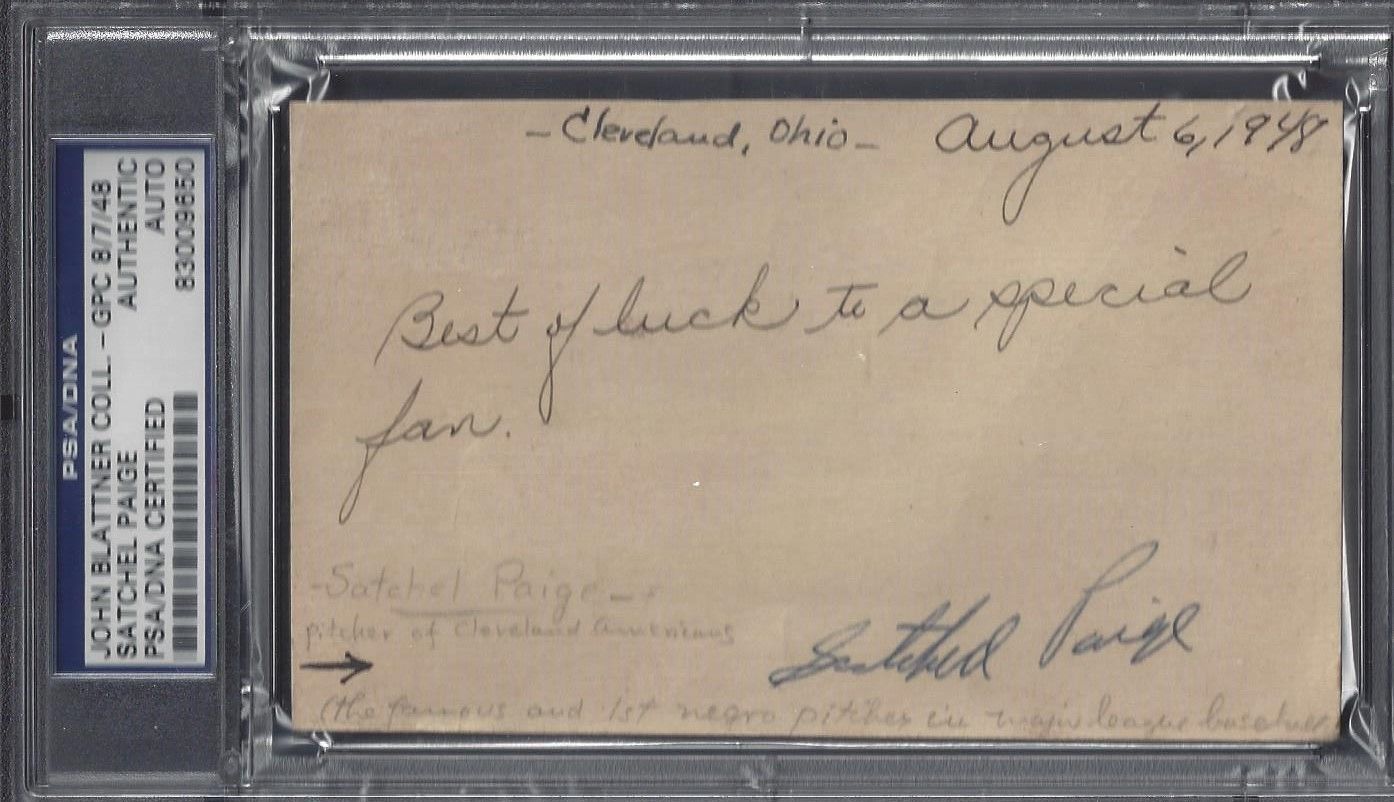 PSA/DNA
JOHN BLATTNER COLL. - GPC 8/7/48
SATCHEL PAIGE AUTHENTIC
PSA/DNA CERTIFIED AUTO
83009650
- Cleveland, Ohio - August 6, 1948
Best of luck to a special
fan.
- Satchel Paige -
pitcher of Cleveland Americans
Satchel Paige
(the famous and 1st negro pitcher in major league baseball